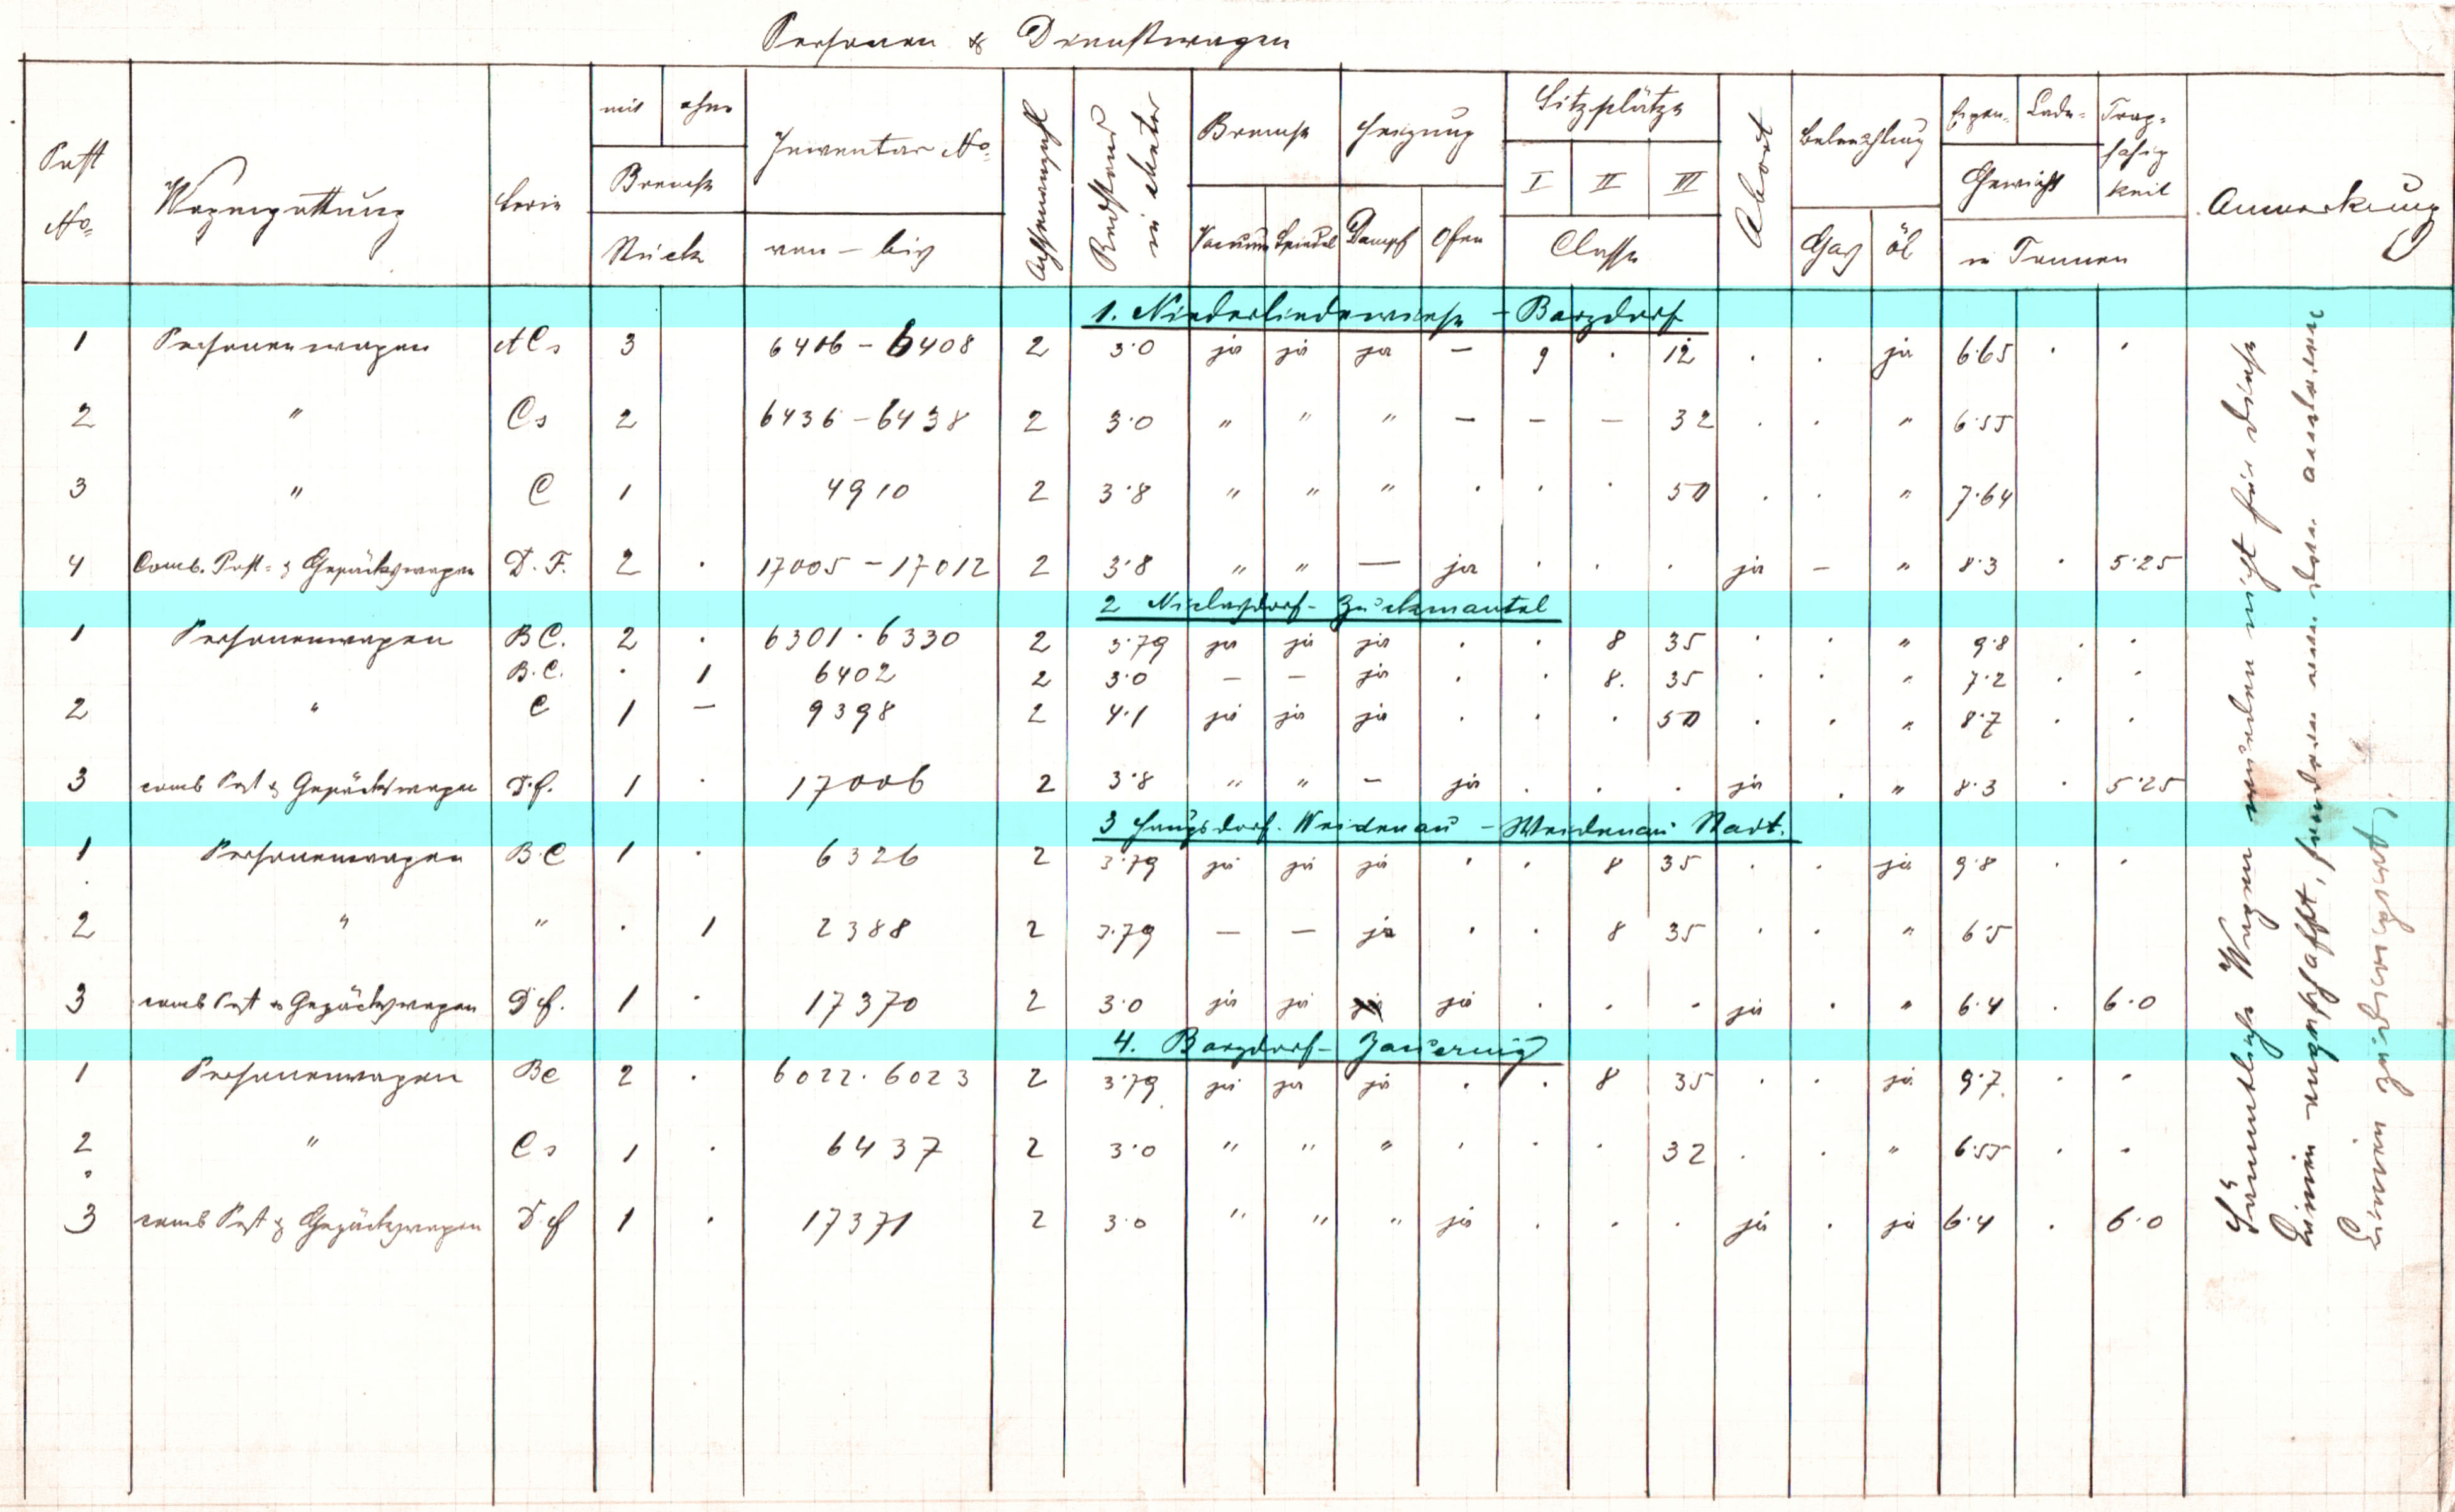 Personen & Dienstwagen
Post No. Wagengattung Serie mit ohne Bremse Stück Inventar No. von – bis Achsenanzahl Radstand in Meter Bremse Vacuum Spindel Heizung Dampf Ofen Sitzplätze I II III Classe Abort Beleuchtung Gas Öl Eigen- Lade- Gewicht Tragfähigkeit in Tonnen Anmerkung
1. Niederlindewiese – Barzdorf
1 Personenwagen ACs 3 6406 – 6408 2 3·0 ja ja ja – 9 · 12 · · ja 6·65 · ·
2 " Cs 2 6436 – 6438 2 3·0 " " " – – – 32 · · " 6·55
3 " C 1 4910 2 3·8 " " " · · · 50 · · " 7·64
4 Comb. Post- & Gepäckswagen D. F. 2 · 17005 – 17012 2 3·8 " " — ja · · · ja – " 8·3 · 5·25
2 Niclasdorf – Zuckmantel
1 Personenwagen BC. 2 · 6301 · 6330 2 3·79 ja ja ja · · 8 35 · · " 9·8 · ·
B.C. · 1 6402 2 3·0 – – ja · · 8. 35 · · " 7·2 · ·
2 " C 1 – 9398 2 4·1 ja ja ja · · · 50 · · " 8·7 · ·
3 comb Post & Gepäckswagen D.f. 1 · 17006 2 3·8 " " – ja · · · ja · " 8·3 · 5·25
3 Haugsdorf. Weidenau – Weidenau Stadt.
1 Personenwagen B.C 1 · 6326 2 3·79 ja ja ja · · 8 35 · · ja 9·8 · ·
2 " " · 1 2388 2 3·79 – – ja · · 8 35 · · " 6·5
3 comb Post & Gepäckswagen D f. 1 · 17370 2 3·0 ja ja ja · · · ja · " 6·4 · 6·0
4. Barzdorf – Jauernig
1 Personenwagen BC 2 · 6022 · 6023 2 3·79 ja ja ja · · 8 35 · · ja 9·7. · ·
2 " Cs 1 · 6437 2 3·0 " " " · · · 32 · · " 6·55 · ·
3 comb Post & Gepäckswagen D.f 1 · 17371 2 3·0 " " " ja · · · ja · ja 6·4 · 6·0
Sämmtliche Wagen wurden nicht für diese
Linien angeschafft, sondern von den anderen
Linien zudirigirt.